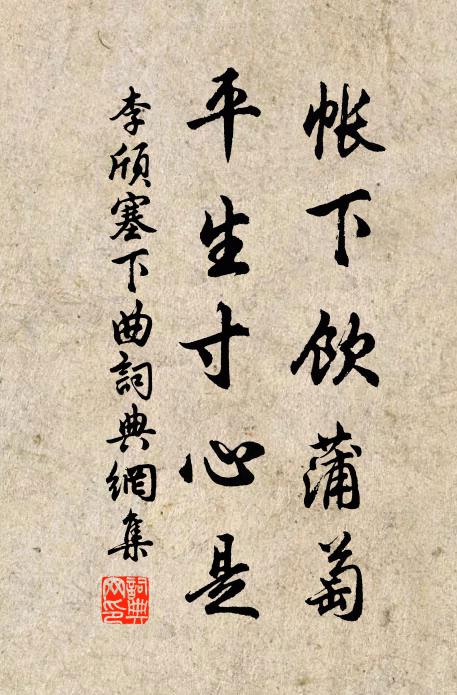 帐下饮蒲萄
平生寸心是
李颀塞下曲詞典網集
詞典